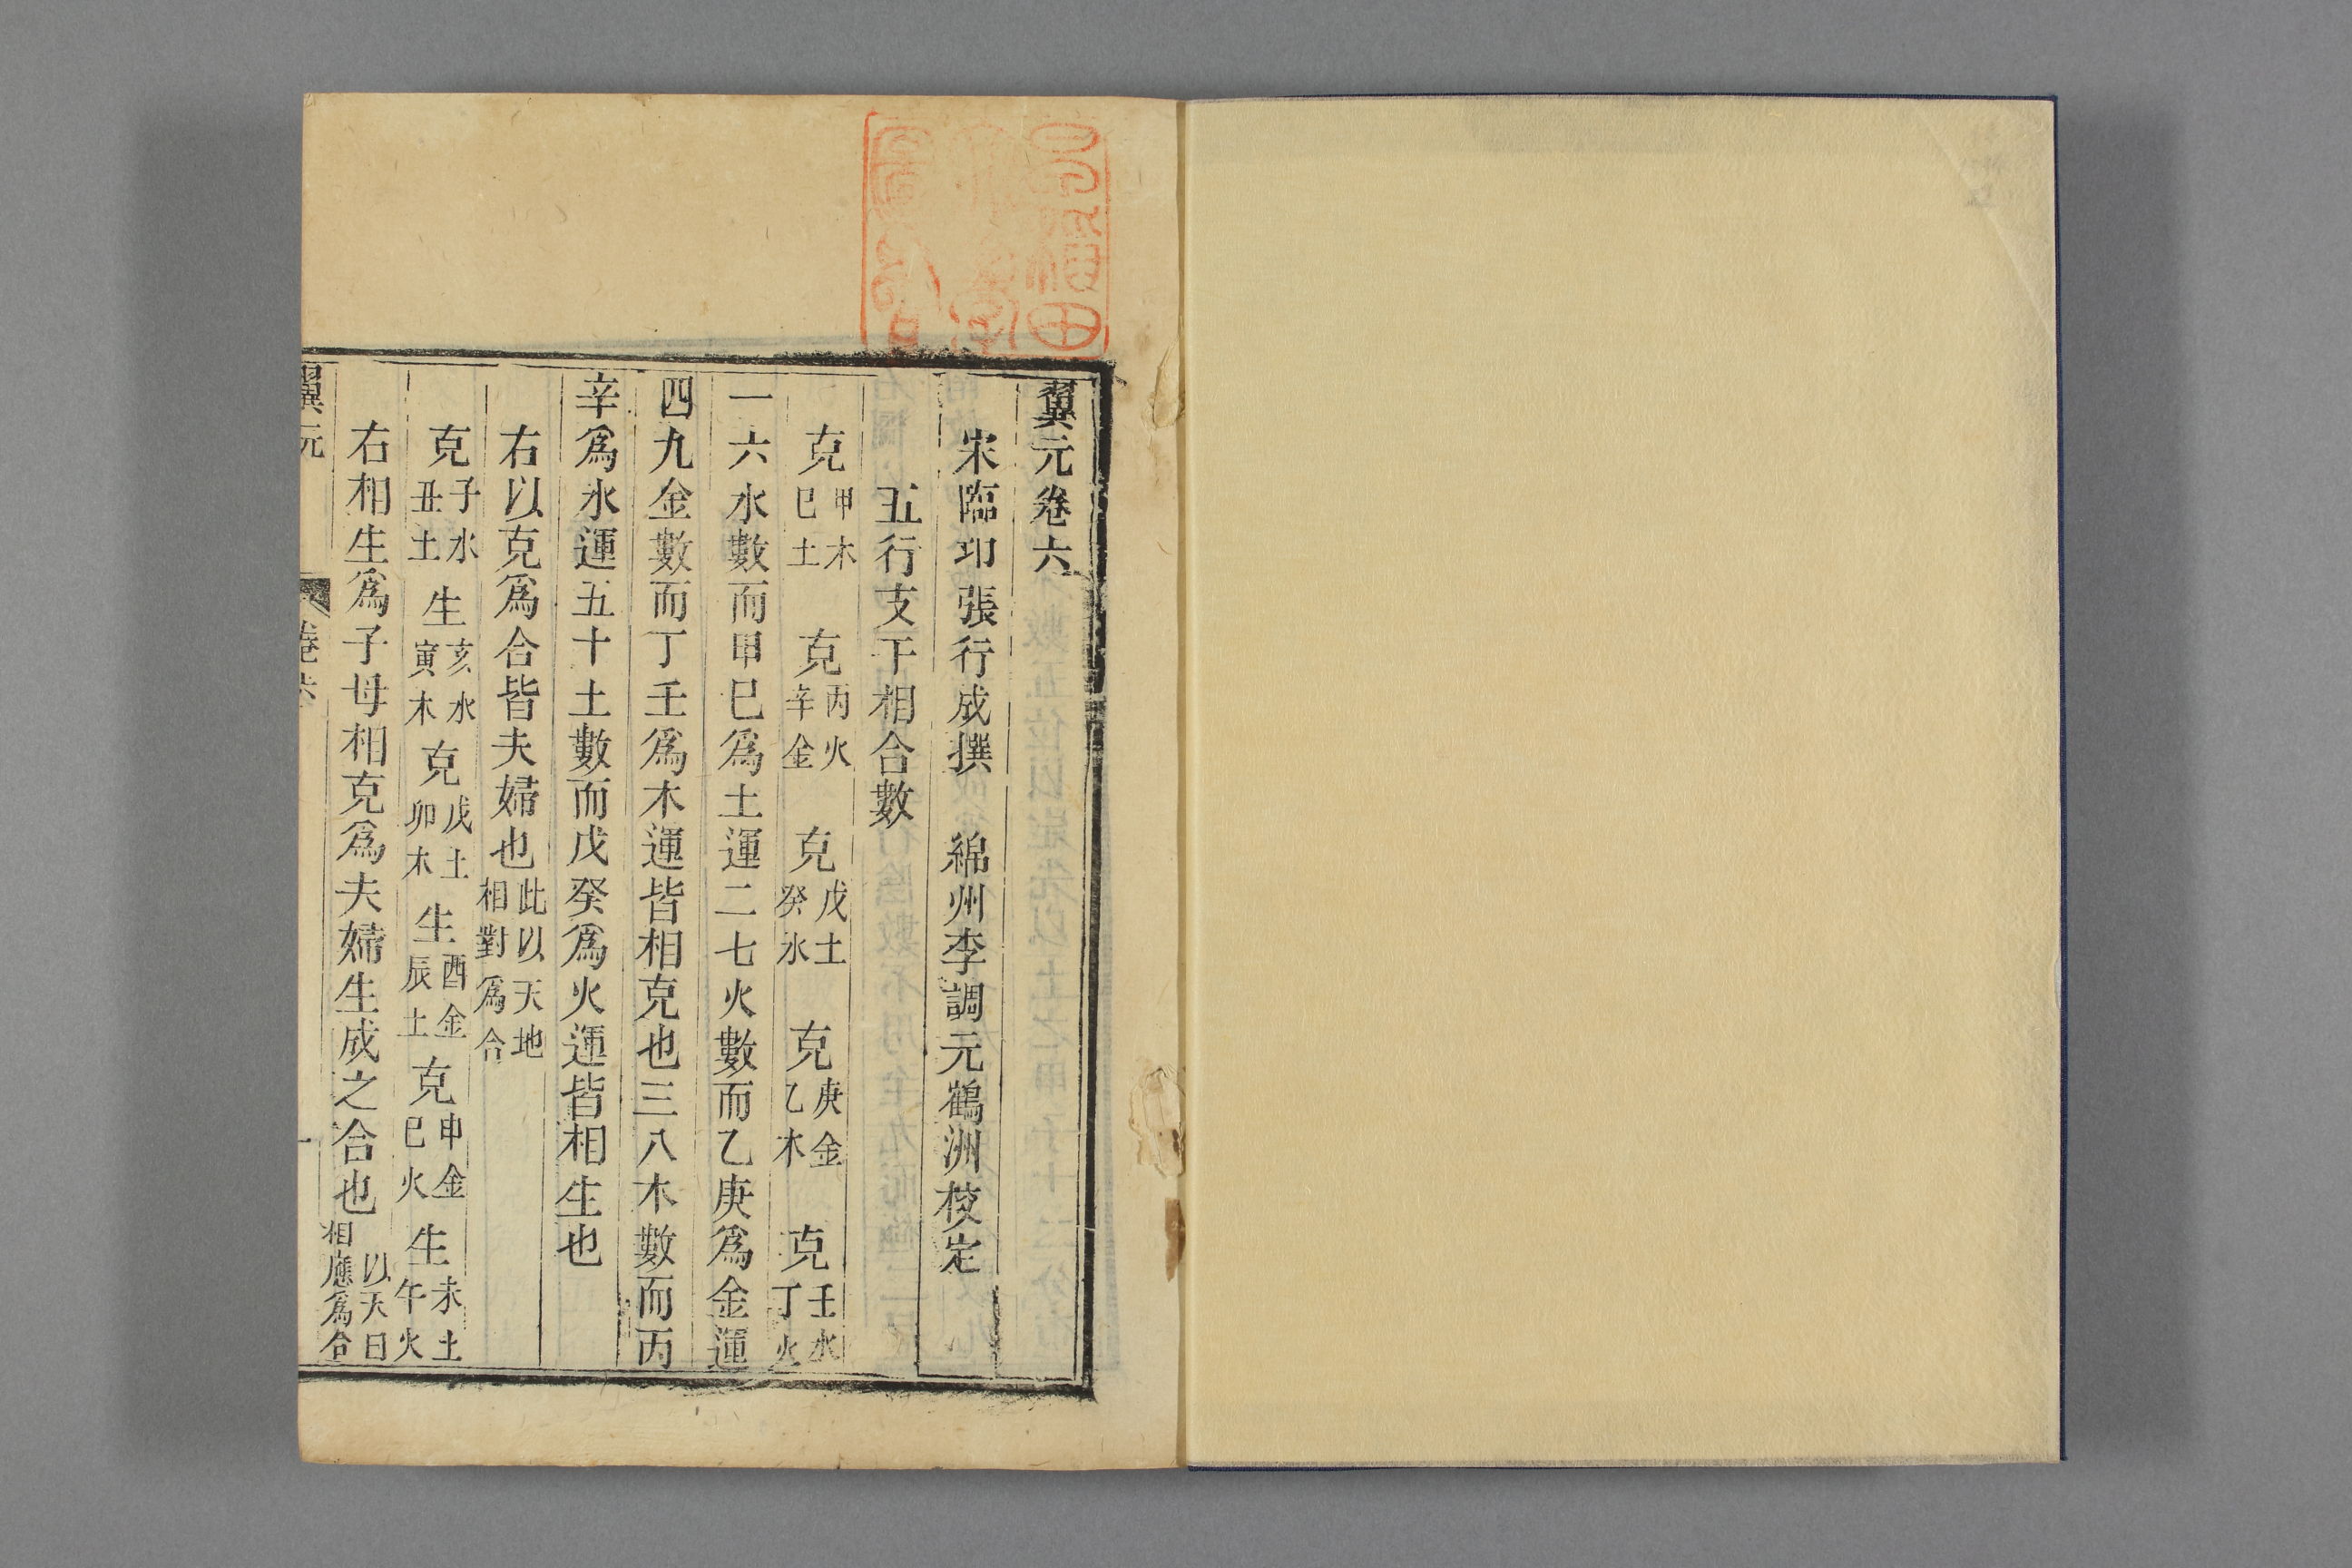 翼元卷六
宋臨卭張行成撰　綿州李調元鶴洲校定
五行支干相合數
克甲木巳土　克丙火辛金　克戊土癸水　克庚金乙木　克壬水丁火
一六水數而甲巳爲土運二七火數而乙庚爲金運
四九金數而丁壬爲木運皆相克也三八木數而丙
辛爲水運五十土數而戊癸爲火運皆相生也
右以克爲合皆夫婦也此以天地相對爲合
克子水丑土　生亥水寅木　克戌土卯木　生酉金辰土　克申金巳火　生未土午火
右相生爲子母相克爲夫婦生成之合也以天日相應爲合
翼元　卷六　一